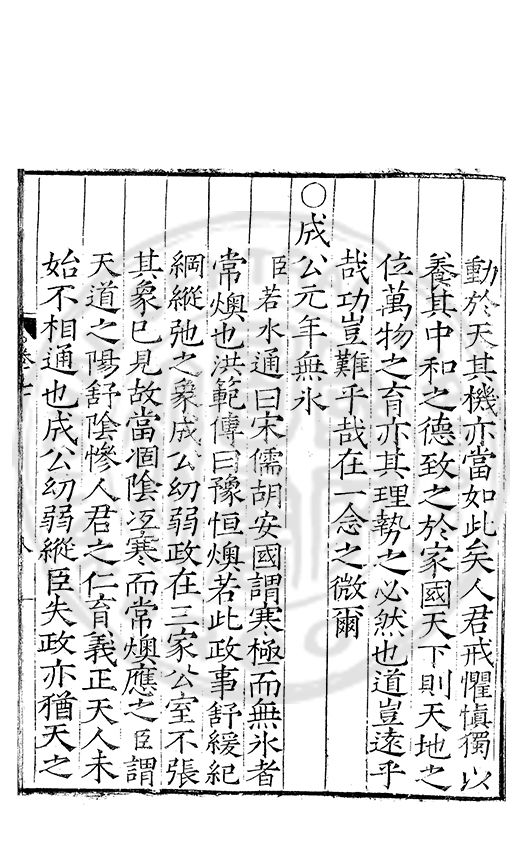 動於天其機亦當如此矣人君戒懼愼獨以
養其中和之德致之於家國天下則天地之
位萬物之育亦其理勢之必然也道豈遠乎
哉功豈難乎哉在一念之微爾
○成公元年無氷
臣若水通曰宋儒胡安國謂寒極而無氷者
常燠也洪範傳曰豫恒燠若此政事舒緩紀
綱縱弛之象成公幼弱政在三家公室不張
其象已見故當涸陰沍寒而常燠應之臣謂
天道之陽舒陰慘人君之仁育義正天人未
始不相通也成公幼弱縱臣失政亦猶天之